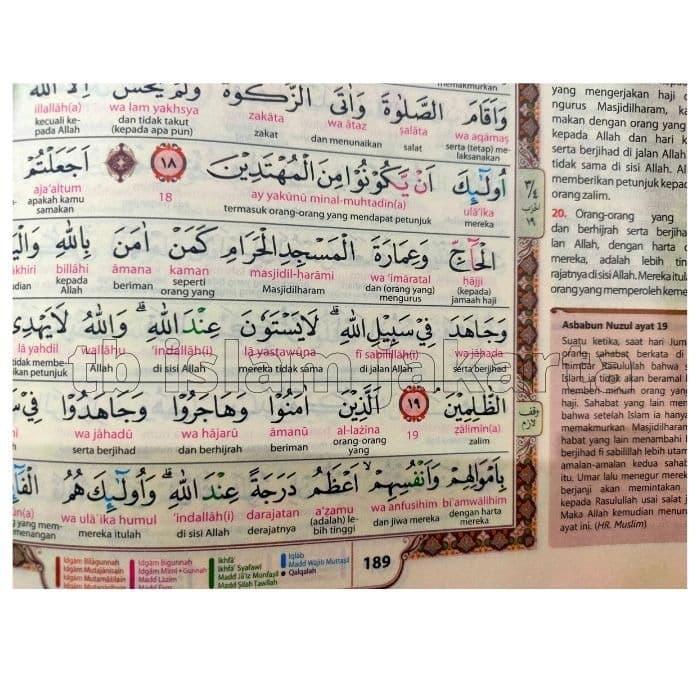 وَاَقَامَ الصَّلٰوةَ وَاٰتَى الزَّكٰوةَ وَلَمْ يَخْشَ اِلَّا اللّٰهَ
wa aqāmaṣ ṣalāta wa ātaz zakāta wa lam yakhsya illallāh(a)
serta (tetap) me-laksanakan salat dan menunaikan zakat dan tidak takut (kepada apa pun) kecuali ke-pada Allah
اُولٰۤىِٕكَ اَنْ يَّكُوْنُوْا مِنَ الْمُهْتَدِيْنَ ١٨ اَجَعَلْتُمْ
ulā'ika ay yakūnū minal-muhtadīn(a) 18 aja'altum
mereka termasuk orang-orang yang mendapat petunjuk apakah kamu samakan
الْحَاۤجِّ وَعِمَارَةَ الْمَسْجِدِ الْحَرَامِ كَمَنْ اٰمَنَ بِاللّٰهِ
ḥājji wa 'imāratal masjidil-ḥarāmi kaman āmana billāhi
(kepada) jamaah haji dan (orang yang) mengurus Masjidilharam seperti orang yang beriman kepada Allah
وَجَاهَدَ فِيْ سَبِيْلِ اللّٰهِ ۗ لَا يَسْتَوٗنَ عِنْدَ اللّٰهِ ۗ وَاللّٰهُ لَا يَهْدِى
wa jāhada fī sabīlillāh(i) lā yastawūna 'indallāh(i) wallāhu lā yahdil
serta berjihad di jalan Allah mereka tidak sama di sisi Allah Allah
الظّٰلِمِيْنَ ١٩ اَلَّذِيْنَ اٰمَنُوْا وَهَاجَرُوْا وَجَاهَدُوْا فِيْ
ẓālimīn(a) 19 al-lażīna āmanū wa hājarū wa jāhadū
zalim orang-orang yang beriman dan berhijrah serta berjihad
بِاَمْوَالِهِمْ وَاَنْفُسِهِمْ ۙ اَعْظَمُ دَرَجَةً عِنْدَ اللّٰهِ ۗ وَاُولٰۤىِٕكَ هُمُ
bi'amwālihim wa anfusihim a'ẓamu darajatan 'indallāh(i) wa ulā'ika humul
dengan harta mereka dan jiwa mereka (adalah) le-bih tinggi derajatnya di sisi Allah mereka itulah
189
Idgām Bilāgunnah
Idgām Bigunnah
Ikhfā'
Ikhfā' Syafawi
Iqlab
Madd Wajib Muttaṣil
Qalqalah
yang mengerjakan haji
ngurus Masjidilharam,
makan dengan orang yang
kepada Allah dan hari
serta berjihad di jalan Allah
tidak sama di sisi Allah.
memberikan petunjuk kepad
orang zalim.
20. Orang-orang yang
dan berhijrah serta berjiha
lan Allah, dengan harta
mereka, adalah lebih tin
rajatnya di sisi Allah. Mereka itula
orang yang memperoleh keme
Asbabun Nuzul ayat 19
Suatu ketika, saat hari Jum
orang sahabat berkata di
mimbar Rasulullah bahwa
Islam ia tidak akan beramal
memberi minum orang yang
haji. Sahabat yang lain
bahwa setelah Islam ia hanya
memakmurkan Masjidilharam
habat yang lain menambahi
berjihad fi sabilillah lebih utam
amalan-amalan kedua sahab
itu. Umar lalu menegur merek
berjanji akan memintakan
kepada Rasulullah usai salat
Maka Allah kemudian menurun
ayat ini. (HR. Muslim)
tb islam jakarta